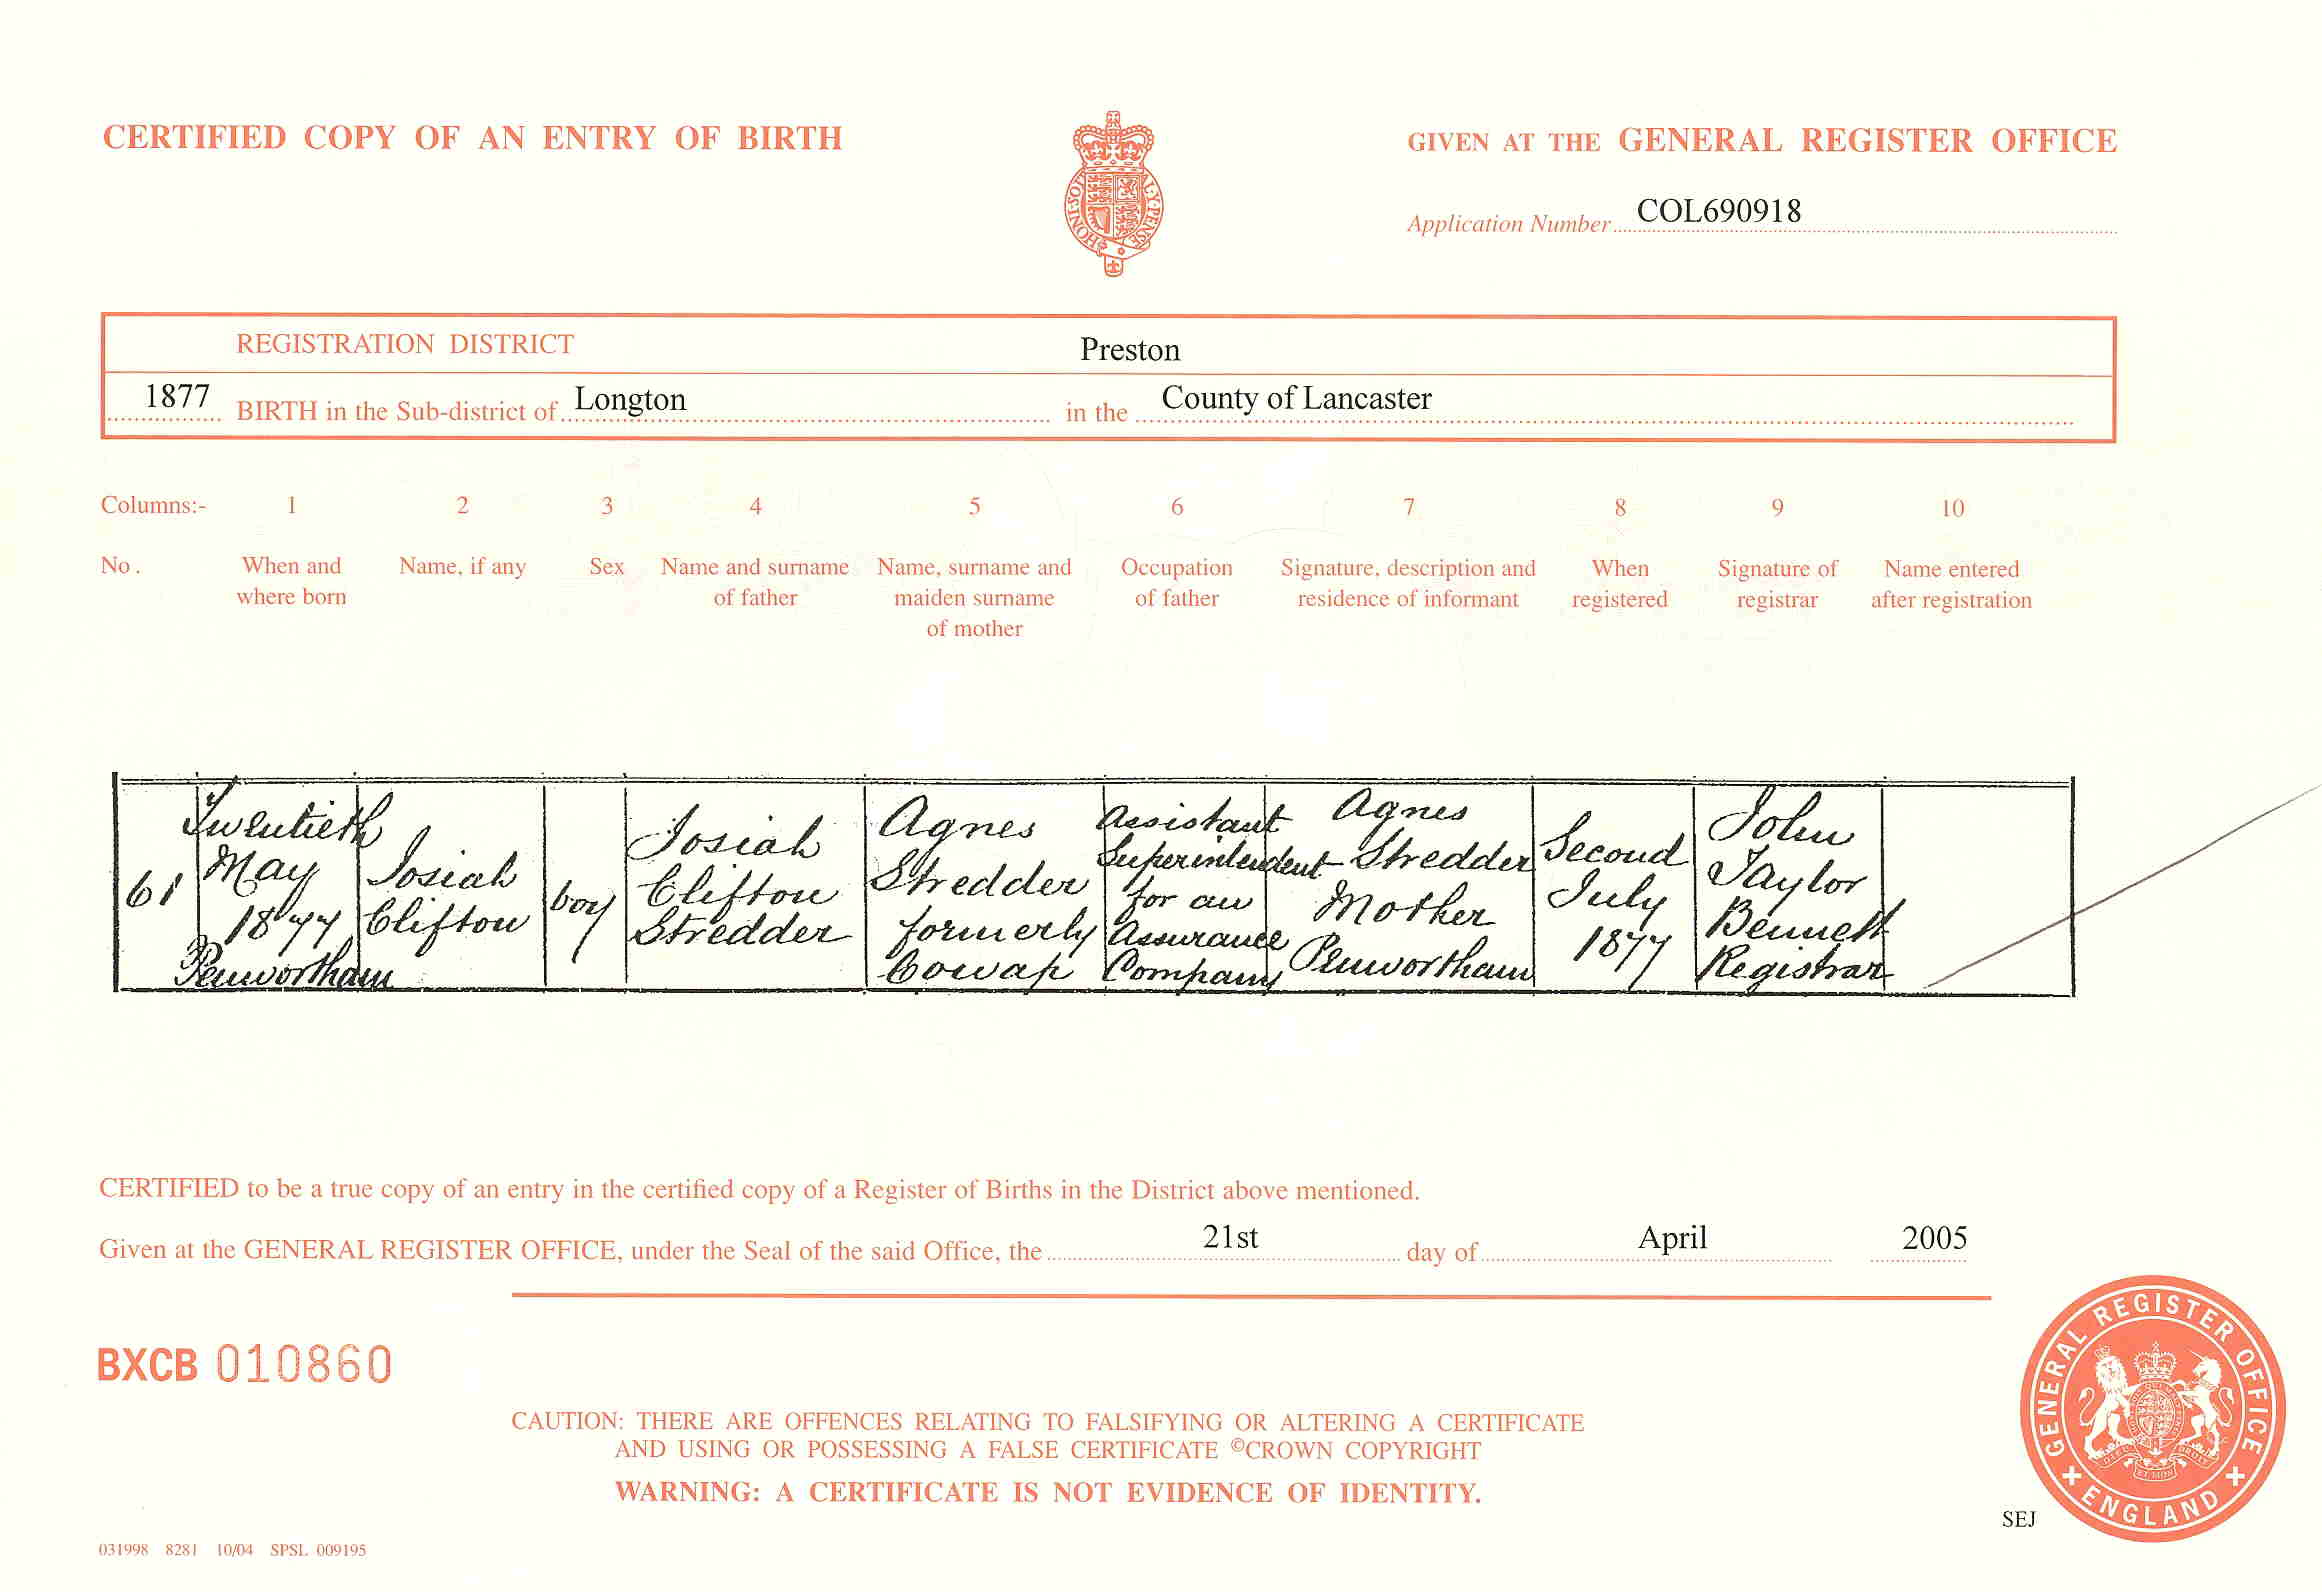 CERTIFIED COPY OF AN ENTRY OF BIRTH
GIVEN AT THE GENERAL REGISTER OFFICE
HONI·SOIT
AL·Y·PENSE
Application Number COL690918
REGISTRATION DISTRICT Preston
1877 BIRTH in the Sub-district of Longton in the County of Lancaster
Columns:- 1 2 3 4 5 6 7 8 9 10
No. When and where born
Name, if any
Sex
Name and surname of father
Name, surname and maiden surname of mother
Occupation of father
Signature, description and residence of informant
When registered
Signature of registrar
Name entered after registration
61
Twentieth
May
1877
Penwortham
Josiah
Clifton
boy
Josiah
Clifton
Stredder
Agnes
Stredder
formerly
Cowap
Assistant
Superintendent
for an
Assurance
Company
Agnes
Stredder
Mother
Penwortham
Second
July
1877
John
Taylor
Bennett
Registrar
CERTIFIED to be a true copy of an entry in the certified copy of a Register of Births in the District above mentioned.
Given at the GENERAL REGISTER OFFICE, under the Seal of the said Office, the 21st day of April 2005
BXCB 010860
CAUTION: THERE ARE OFFENCES RELATING TO FALSIFYING OR ALTERING A CERTIFICATE
AND USING OR POSSESSING A FALSE CERTIFICATE ©CROWN COPYRIGHT
WARNING: A CERTIFICATE IS NOT EVIDENCE OF IDENTITY.
GENERAL REGISTER OFFICE
ENGLAND
SEJ
031998 8281 10/04 SPSL 009195